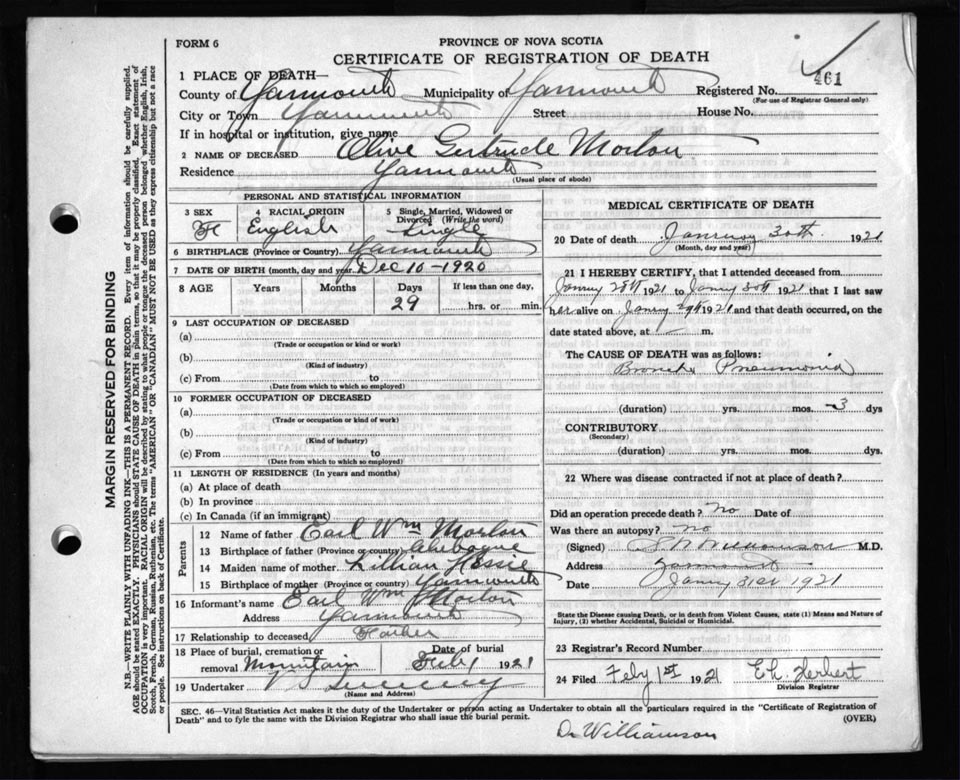 FORM 6
PROVINCE OF NOVA SCOTIA
CERTIFICATE OF REGISTRATION OF DEATH
461
1 PLACE OF DEATH—
County of Yarmouth Municipality of Yarmouth Registered No.
(For use of Registrar General only)
City or Town Yarmouth Street House No.
If in hospital or institution, give name
2 NAME OF DECEASED Olive Gertrude Morton
Residence Yarmouth
(Usual place of abode)
PERSONAL AND STATISTICAL INFORMATION
3 SEX 4 RACIAL ORIGIN 5 Single, Married, Widowed or Divorced (Write the word)
F English Single
6 BIRTHPLACE (Province or Country) Yarmouth
7 DATE OF BIRTH (month, day and year) Dec 10-1920
8 AGE Years Months Days If less than one day,
29 hrs. or min.
9 LAST OCCUPATION OF DECEASED
(a)
(Trade or occupation or kind or work)
(b)
(Kind of industry)
(c) From to
(Date from which to which so employed)
10 FORMER OCCUPATION OF DECEASED
(a)
(Trade or occupation or kind of work)
(b)
(Kind of industry)
(c) From to
(Date from which to which so employed)
11 LENGTH OF RESIDENCE (In years and months)
(a) At place of death
(b) In province
(c) In Canada (if an immigrant)
Parents
12 Name of father Earl Wm Morton
13 Birthplace of father (Province or country)
14 Maiden name of mother Lillian
15 Birthplace of mother (Province or country) Yarmouth
16 Informant's name Earl Wm Morton
Address Yarmouth
17 Relationship to deceased Father
18 Place of burial, cremation or removal Mountain Date of burial Feb 1 1921
19 Undertaker
(Name and Address)
MEDICAL CERTIFICATE OF DEATH
20 Date of death January 30th 1921
(Month, day and year)
21 I HEREBY CERTIFY, that I attended deceased from
Janry 28th 1921 to Janry 30th 1921 that I last saw
her alive on Janry 29th 1921 and that death occurred, on the
date stated above, at — m.
The CAUSE OF DEATH was as follows:
Broncho Pneumonia
(duration) yrs. mos. 3 dys
CONTRIBUTORY
(Secondary)
(duration) yrs. mos. dys
22 Where was disease contracted if not at place of death?
Did an operation precede death? No Date of
Was there an autopsy? No
(Signed) Williamson M.D.
Address Yarmouth
Date Janry 31st 1921
State the Disease causing Death, or in death from Violent Causes, state (1) Means and Nature of Injury, (2) whether Accidental, Suicidal or Homicidal.
23 Registrar's Record Number
24 Filed Feby 1st 1921 Herbert
Division Registrar
SEC. 46—Vital Statistics Act makes it the duty of the Undertaker or person acting as Undertaker to obtain all the particulars required in the "Certificate of Registration of
Death" and to fyle the same with the Division Registrar who shall issue the burial permit.
(OVER)
Dr Williamson
MARGIN RESERVED FOR BINDING
N.B.—WRITE PLAINLY WITH UNFADING INK—THIS IS A PERMANENT RECORD. Every item of information should be carefully supplied.
AGE should be stated EXACTLY. PHYSICIANS should STATE CAUSE OF DEATH in plain terms, so that it may be properly classified. Exact statement of
OCCUPATION is very important. RACIAL ORIGIN will be described by stating to what people or tongue the deceased person belonged whether English, Irish,
Scotch, French, German, Russian, Ruthenian, etc. The terms "AMERICAN" OR "CANADIAN" MUST NOT BE USED as they express citizenship but not a race
or people. See instructions on back of Certificate.